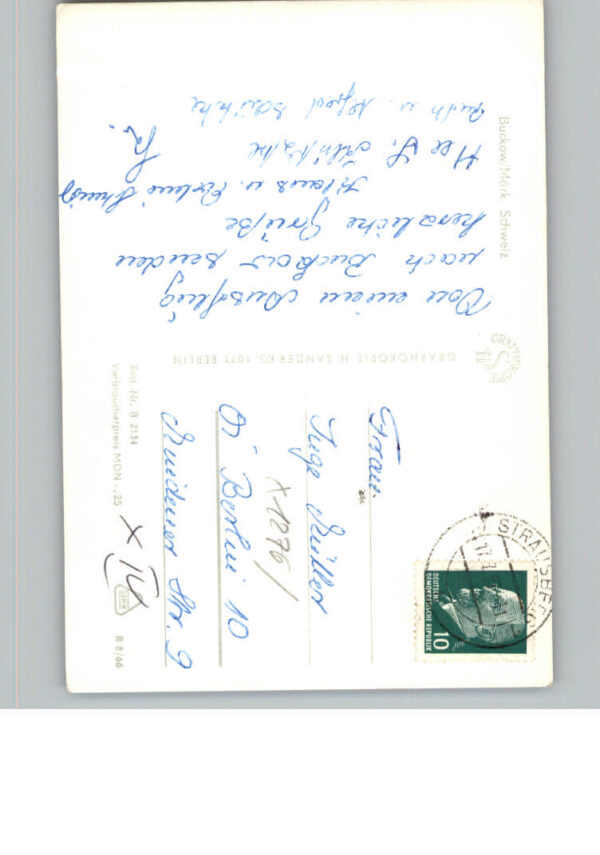 Buckow/Märk. Schweiz
Von einem Ausflug
nach Buckow senden
herzliche Grüße
Klaus u.
Ruth u.
GRAPHOKOPIE H. SANDER KG. 1071 BERLIN
GRAPHOKOPIE
Best. Nr. B 2134
Verbraucherpreis MDN -,25
B 8/66
Frau
Inge Müller
X 1276/
Berlin 10
Str. 9
X IV
STRAUSBERG
DEUTSCHE
DEMOKRATISCHE REPUBLIK
10